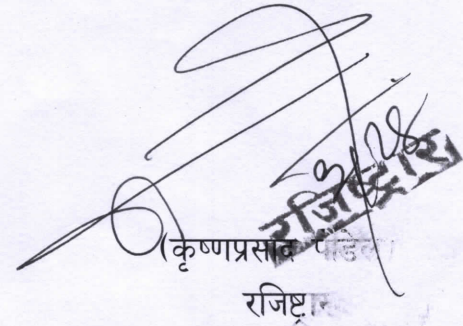 रजिष्ट्रार
(कृष्णप्रसाद पौडेल)
रजिष्ट्रार